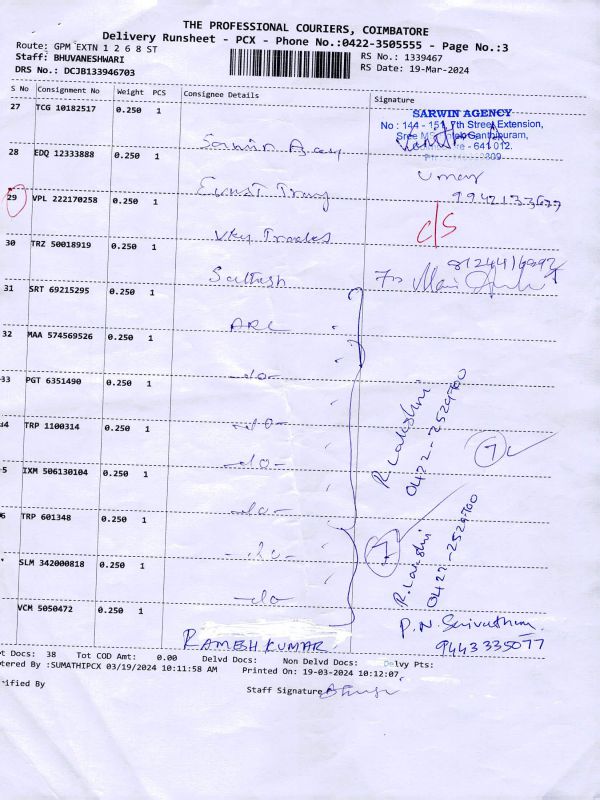 THE PROFESSIONAL COURIERS, COIMBATORE
Delivery Runsheet - PCX - Phone No.:0422-3505555 - Page No.:3
Route: GPM EXTN 1 2 6 8 ST
RS No.: 1339467
Staff: BHUVANESHWARI
RS Date: 19-Mar-2024
DRS No.: DCJB133946703
S No Consignment No Weight PCS Consignee Details Signature
27 TCG 10182517 0.250 1
SARWIN AGENCY
No : 144 - 151, 7th Street Extension,
- 641 012.
Sarwin Agency
28 EDQ 12333888 0.250 1
Umar
29 VPL 222170258 0.250 1
C/S
Vky Traders
30 TRZ 50018919 0.250 1
Sathish
For
31 SRT 69215295 0.250 1
ARC
32 MAA 574569526 0.250 1
-do-
33 PGT 6351490 0.250 1
-do-
34 TRP 1100314 0.250 1
-do-
5 IXM 506130104 0.250 1
-do-
6 TRP 601348 0.250 1
-do-
SLM 342000818 0.250 1
-do-
VCM 5050472 0.250 1
RAMESH KUMAR
R. Lakshmi
0422-2529700
7
R. Lakshmi
0422-2529700
7
9443335077
t Docs: 38 Tot COD Amt: 0.00 Delvd Docs: Non Delvd Docs: Delvy Pts:
tered By :SUMATHIPCX 03/19/2024 10:11:58 AM Printed On: 19-03-2024 10:12:07
ified By
Staff Signature